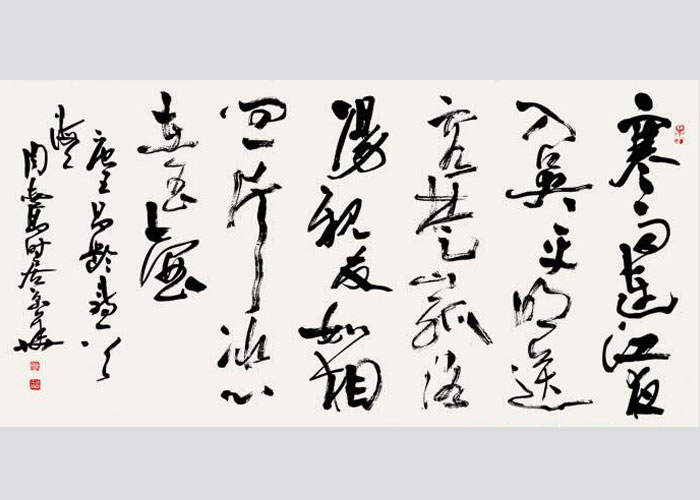 寒雨連江夜
入吳平明送
客楚山孤洛
陽親友如相
問一片冰心
在玉壺
唐王昌齡詩一
周志高時居